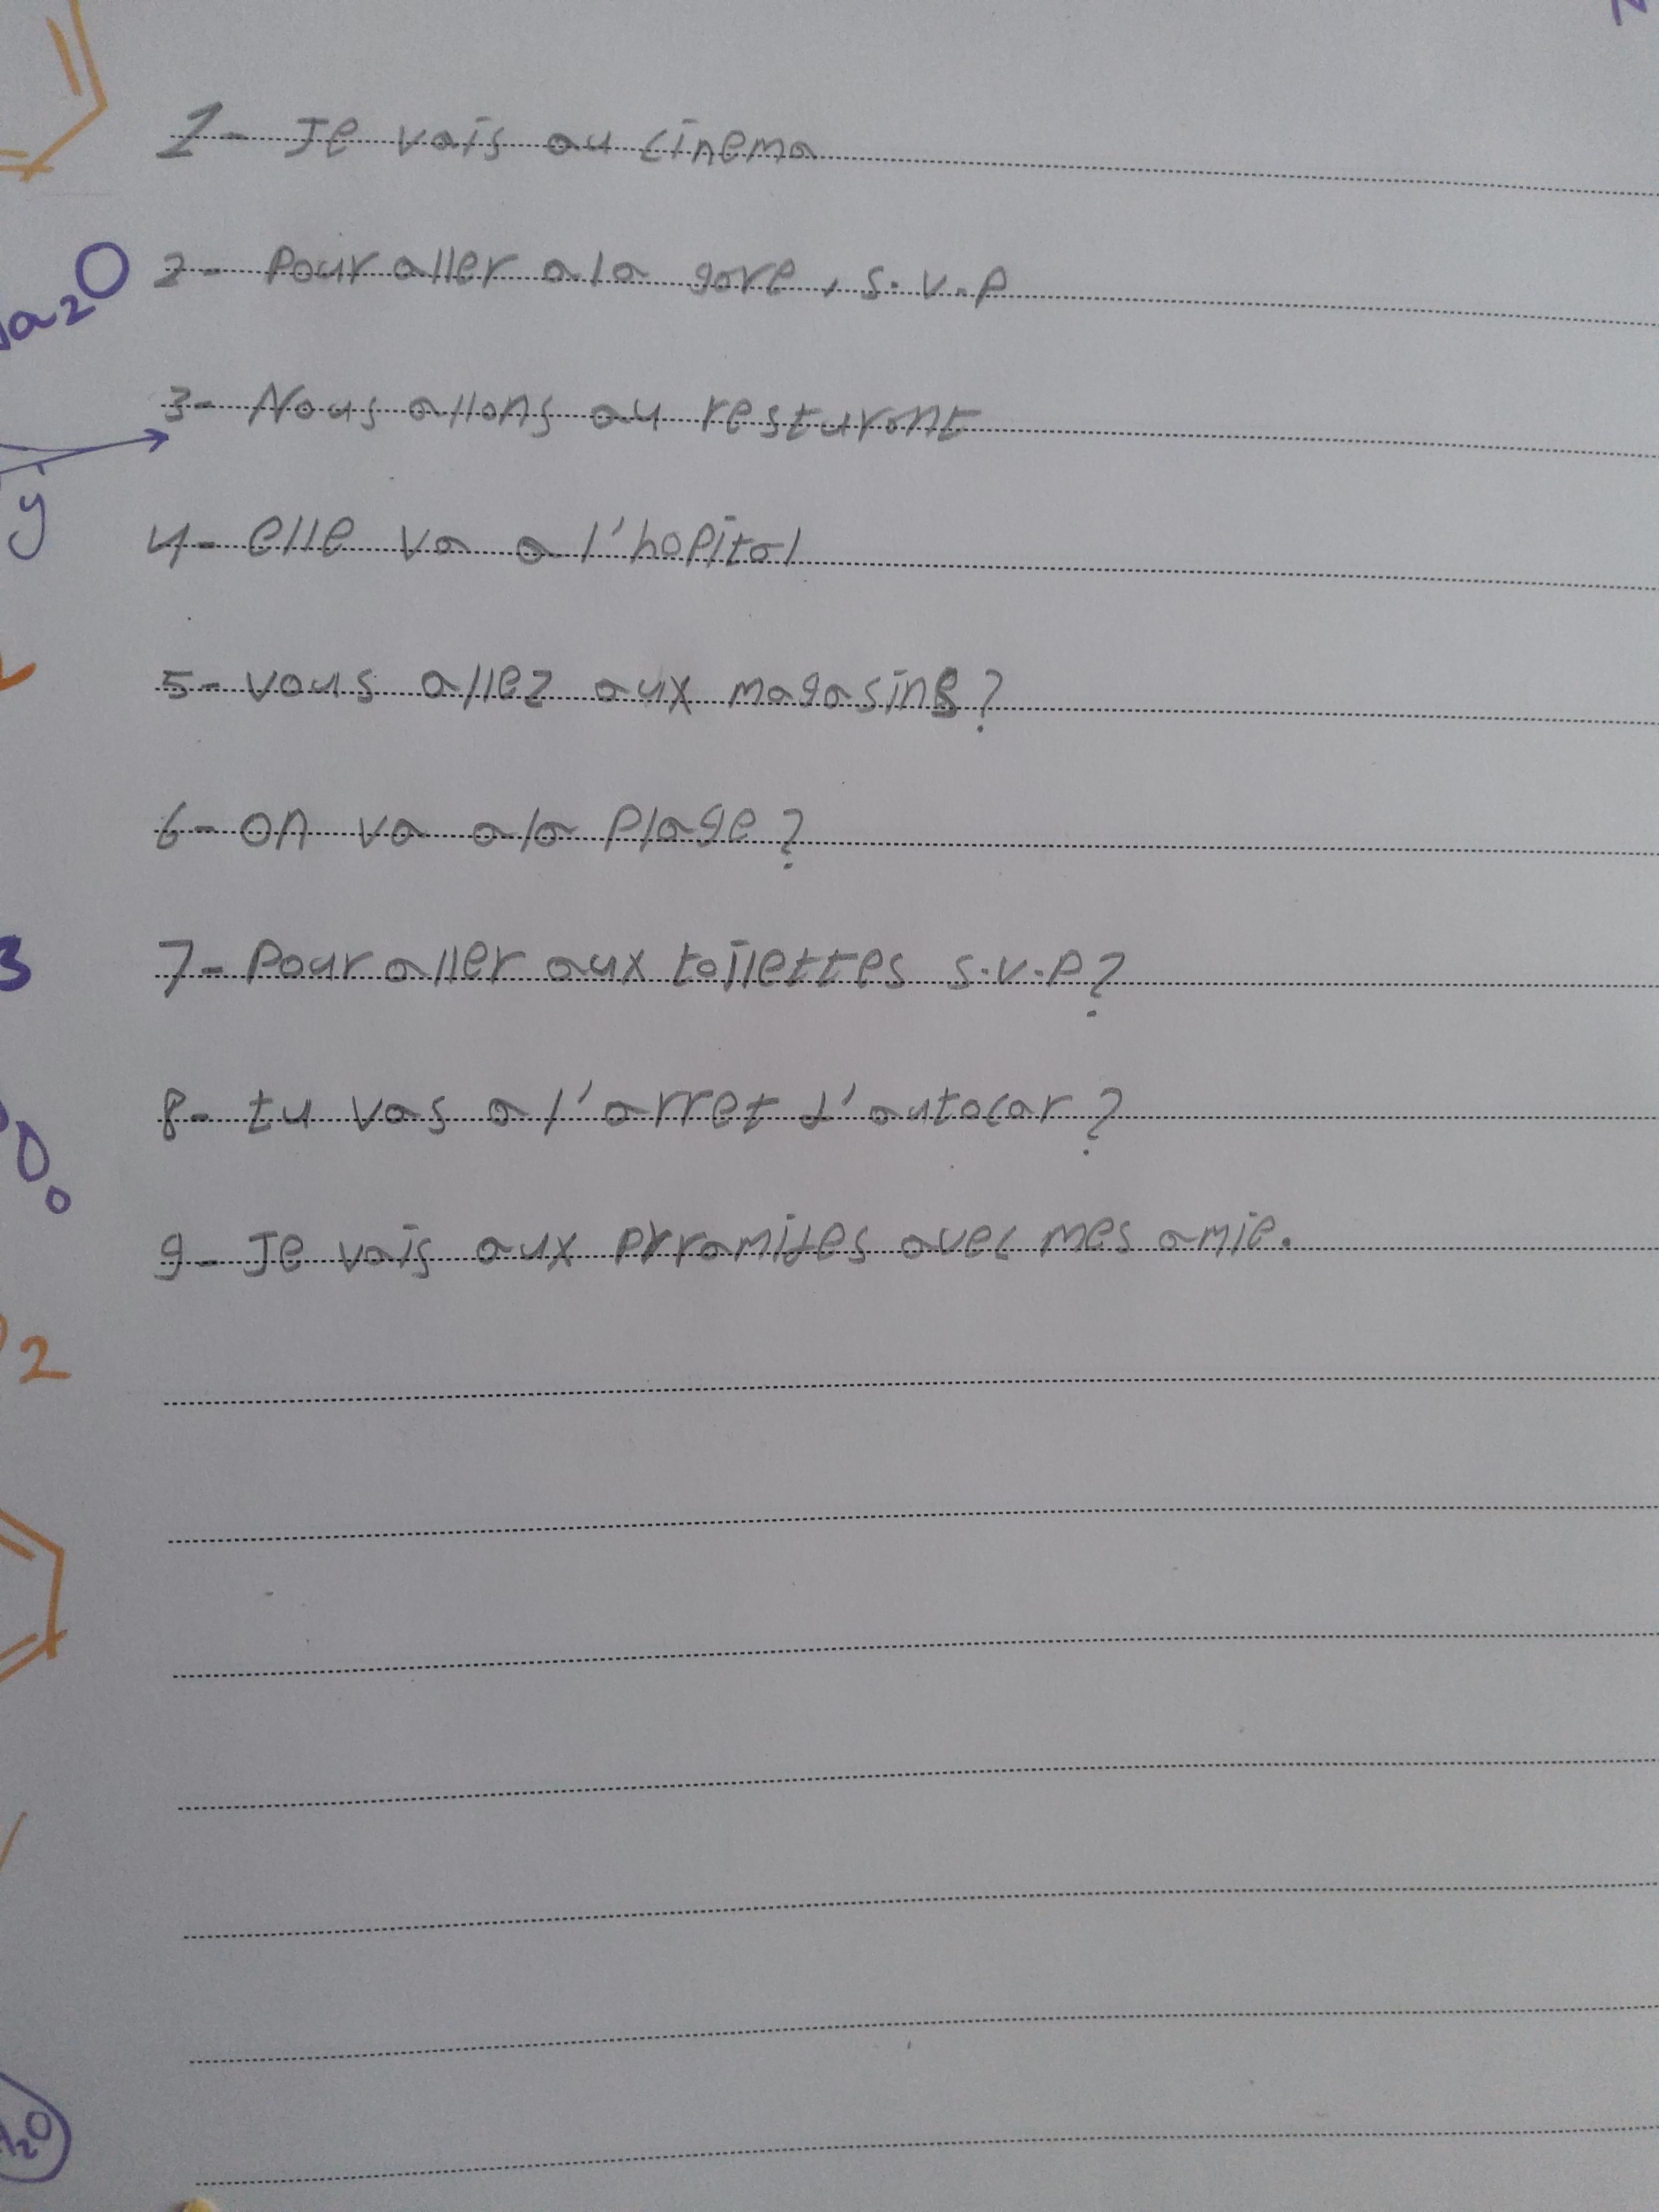 1- Je vais au cinema
2- Pour aller a la gare, s.v.p
3- Nous allons au resturant
4- elle va a l'hopital
5- vous allez aux magasins?
6- on va a la plage?
7- Pour aller aux toillettes s.v.p?
8- tu vas a l'arret d'autocar?
9- Je vais aux pyramides avec mes amie.
a₂O
y
3
2